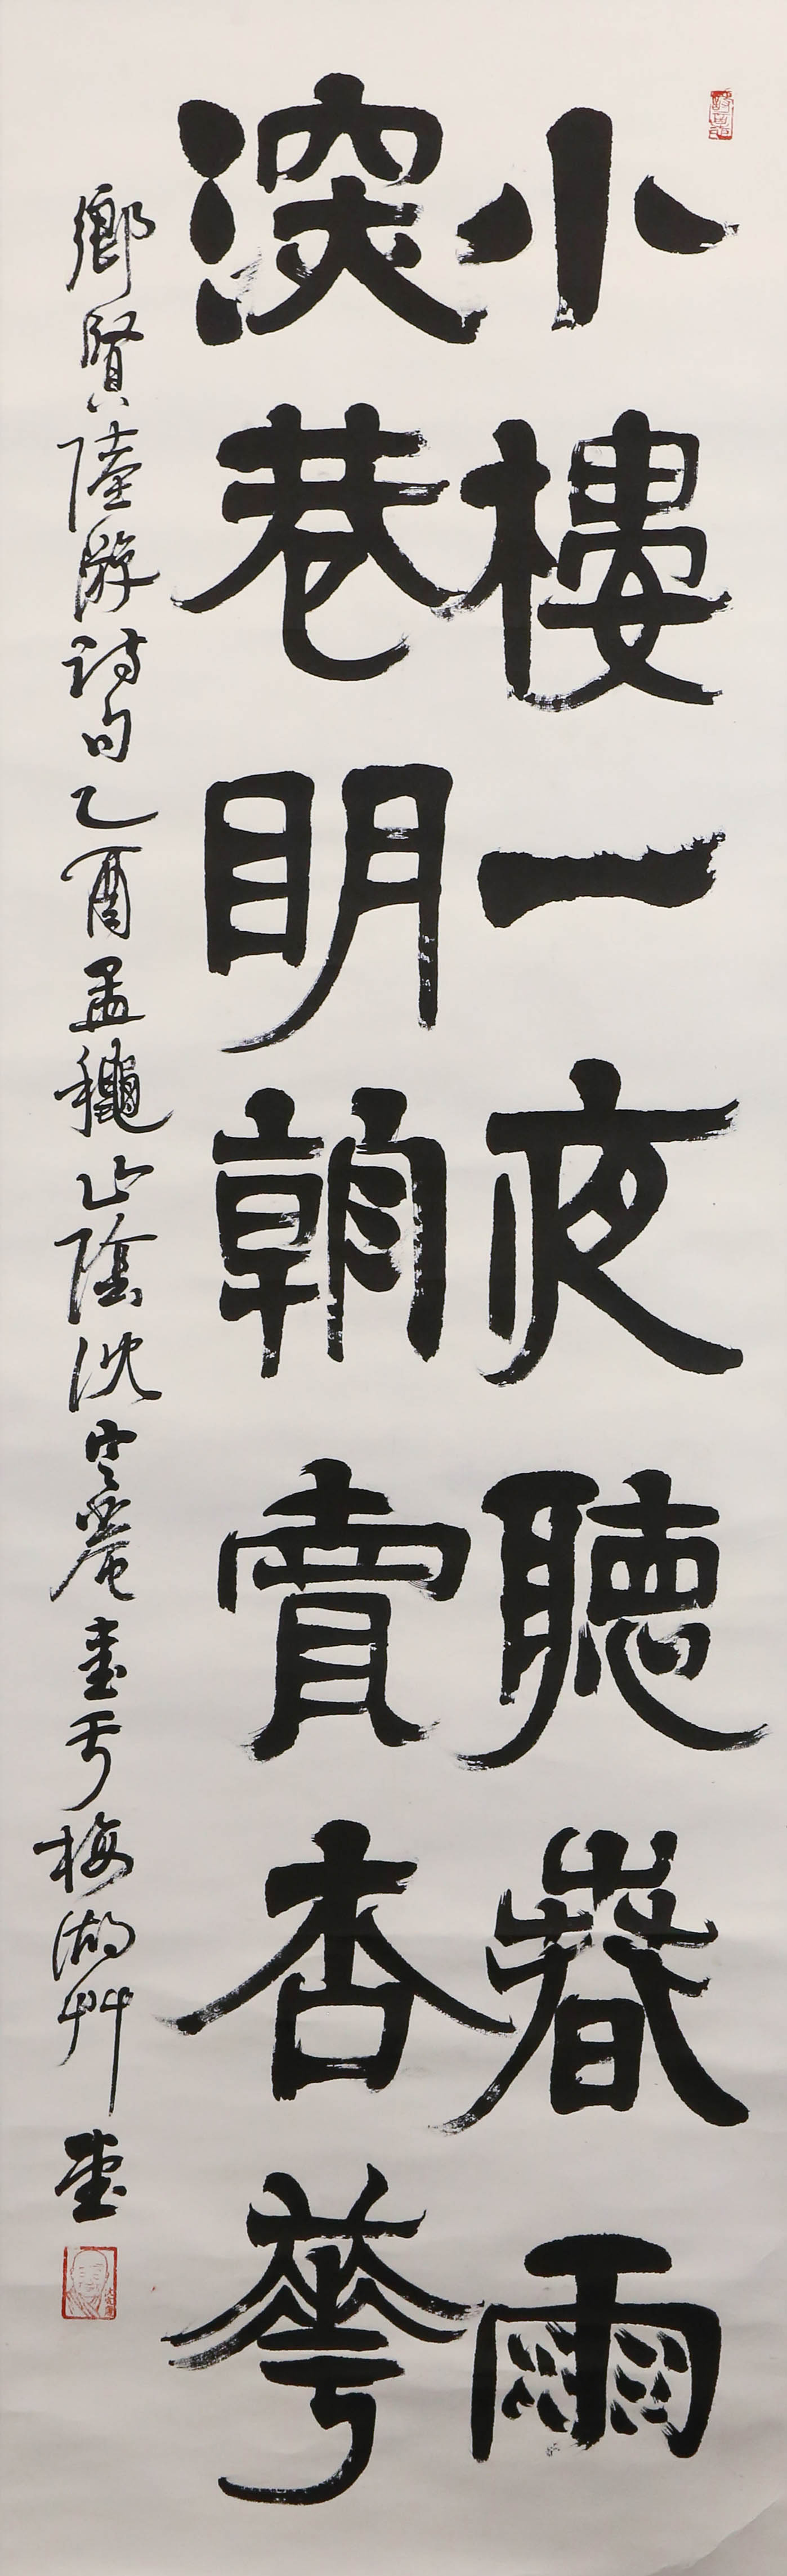 小樓一夜聽春雨
深巷明朝賣杏華
鄉賢陸游詩句乙酉孟穐山陰沈定庵書于梅湖艸堂